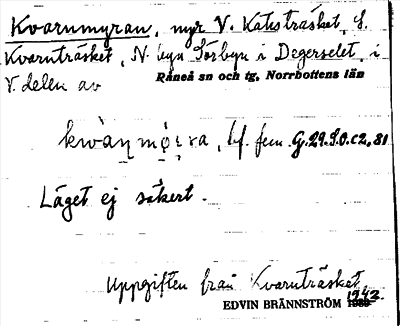 Kvarnmyran, myr V. Kattsträsket, S.
Kvarnträsket, N. byn Sörbyn i Degerselet, i
V. delen av Råneå sn och tg, Norrbottens län
kwàṇmø̣ṛa, bf. fem. G.29.S.O.c2,81
Läget ej säkert.
Uppgiften från Kvarnträsket
EDVIN BRÄNNSTRÖM 1942.